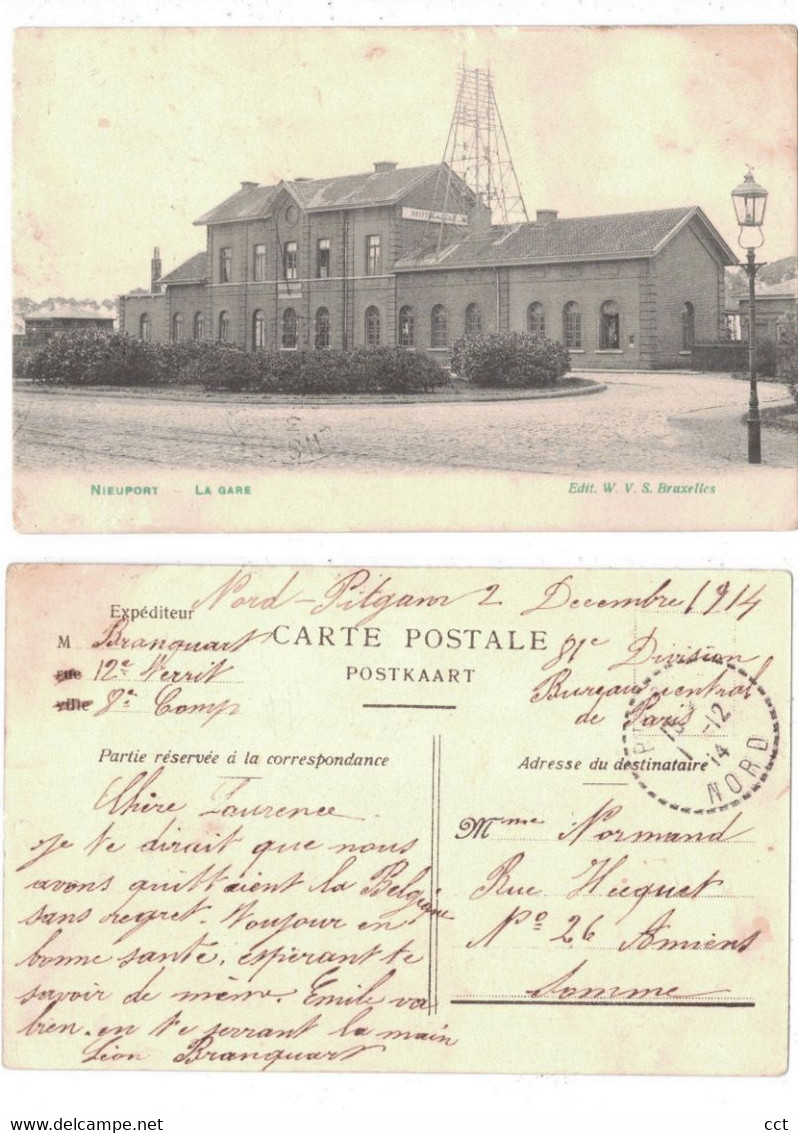 NIEUPORT - LA GARE
Edit. W. V. S. Bruxelles
Nord - Pitgam 2 Decembre 1914
Expéditeur
M Branquart
rue 12e Territ
ville 8e Comp
CARTE POSTALE
POSTKAART
81e Division
Bureau central
de Paris
-12
14
NORD
Partie réservée à la correspondance
Adresse du destinataire
Chère Laurence
je te dirait que nous
avons quittaient la Belgique
sans regret. Toujour en
bonne santé, espérant te
savoir de même. Emile va
bien. en te serrant la main
Léon Branquart
Mme Normand
Rue Hecquet
No 26 Amiens
Somme
delcampe.net
cct